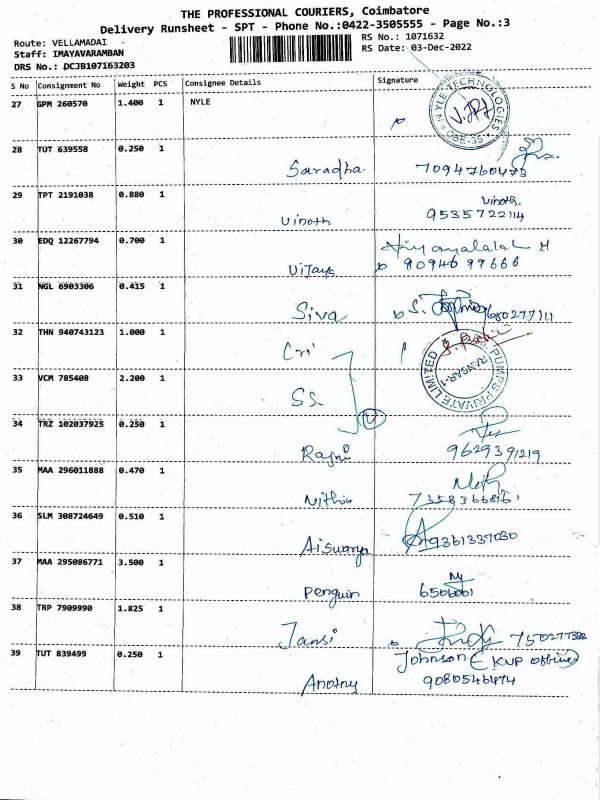 THE PROFESSIONAL COURIERS, Coimbatore
Delivery Runsheet - SPT - Phone No.:0422-3505555 - Page No.:3
Route: VELLAMADAI
Staff: IMAYAVARAMBAN
DRS No.: DCJB107163203
RS No.: 1071632
RS Date: 03-Dec-2022
S No Consignment No Weight PCS Consignee Details Signature
27 GPM 260570 1.400 1 NYLE
NYLE TECHNOLOGIES
CBE-35
28 TUT 639558 0.250 1
Saradha 7094760473
29 TPT 2191038 0.880 1
Vinoth
Vinoth 9535722114
30 EDQ 12267794 0.700 1
Vijaya 9094697666
31 NGL 6903306 0.415 1
Siva
32 THN 940743123 1.000 1
Cri
PUMPS PRIVATE LIMITED
33 VCM 785408 2.200 1
SS
34 TRZ 102037925 0.250 1
Rajni 9629391219
35 MAA 296011888 0.470 1
Nithin
36 SLM 308724649 0.510 1
Aiswarya 9361337030
37 MAA 295086771 3.500 1
Penguin
38 TRP 7909990 1.825 1
Jansi
39 TUT 839499 0.250 1
Johnson
Anotny